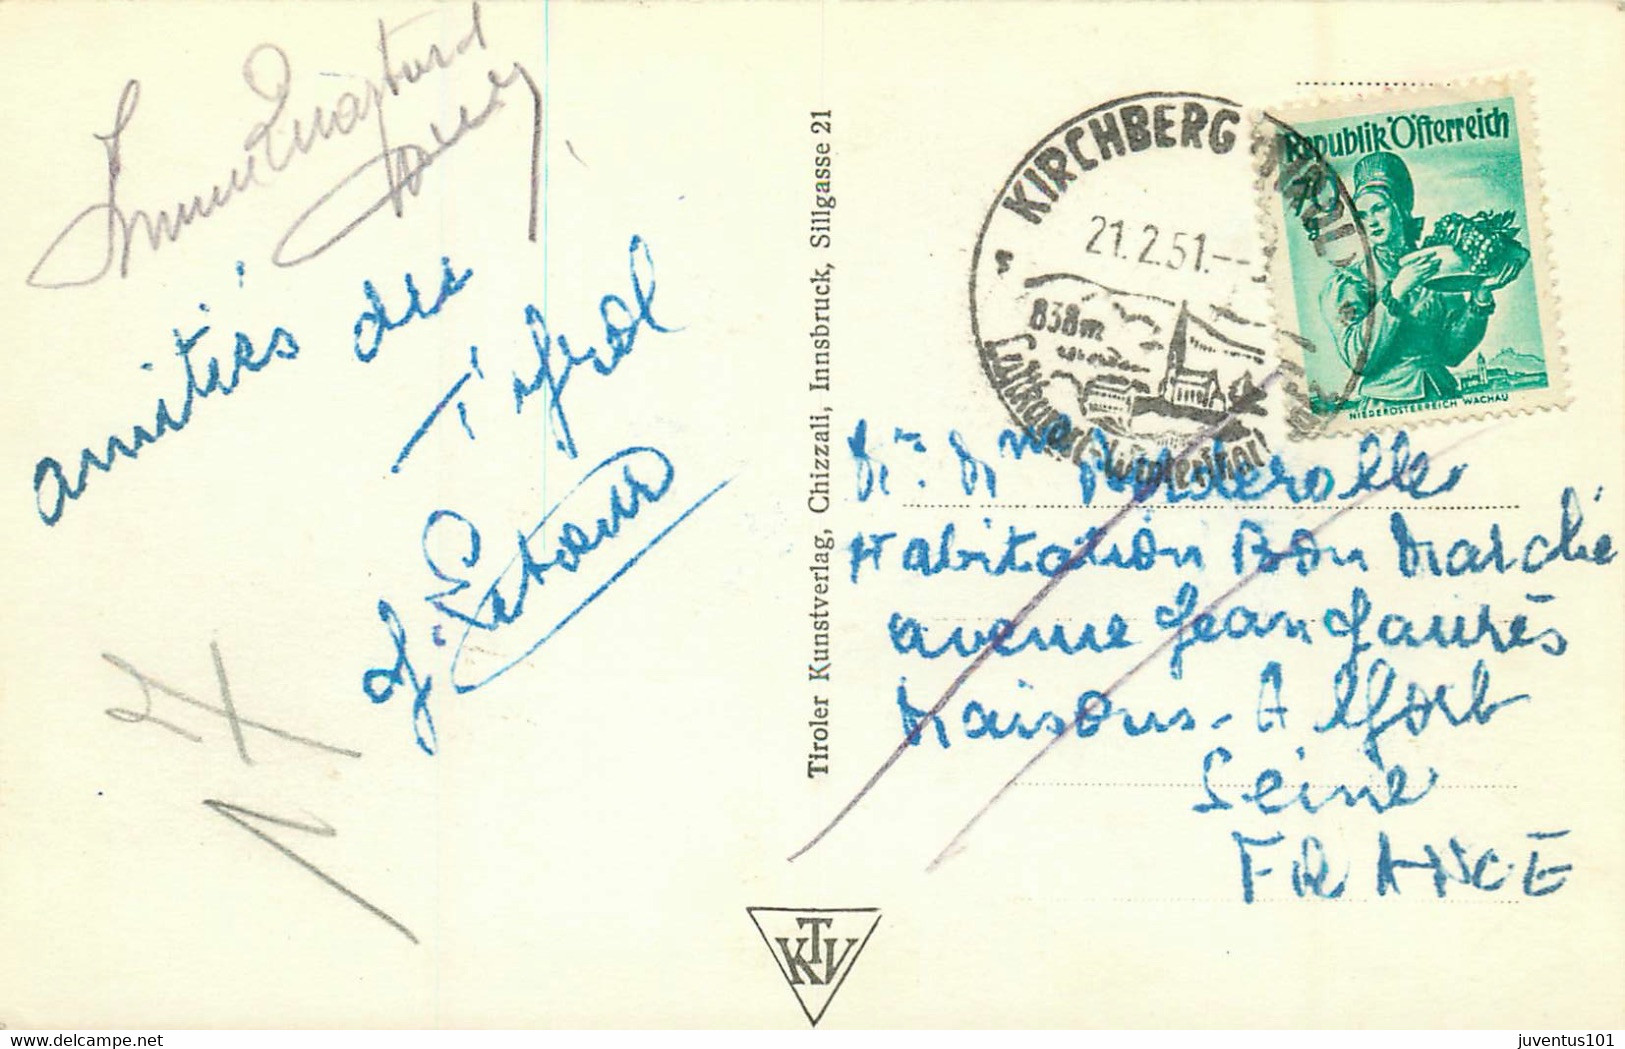 amitiés du
Tyrol
Tiroler Kunstverlag, Chizzali, Innsbruck, Sillgasse 21
KTV
KIRCHBERG TIROL
21.2.51.--
838m
Luftkurort-Wintersport
Republik Österreich
NIEDERÖSTERREICH WACHAU
Mr. Mme
Habitation Bon Marché
avenue Jean Jaurès
Maisons-Alfort
Seine
FRANCE
www.delcampe.net
juventus101